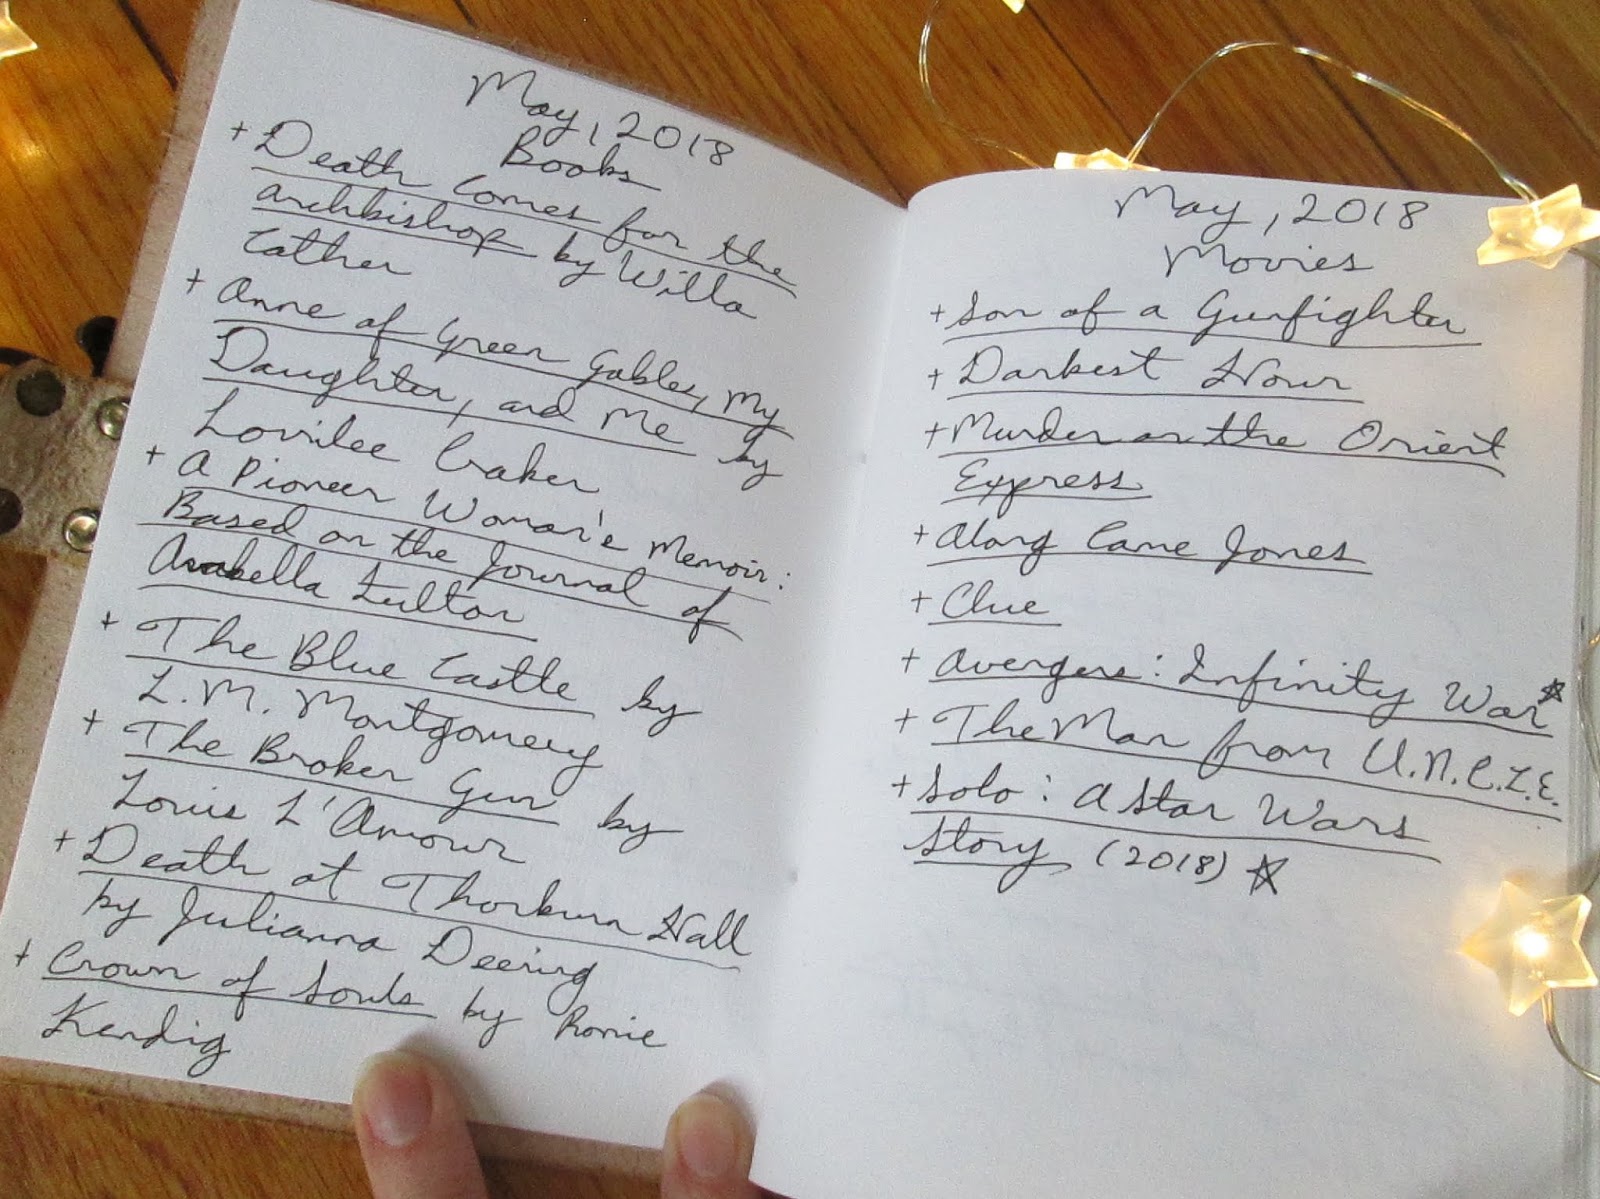 May, 2018
Books
+ Death Comes for the
Archbishop by Willa
Cather
+ Anne of Green Gables, My
Daughter, and Me by
Lorilee Craker
+ A Pioneer Woman's Memoir:
Based on the Journal of
Arabella Fulton
+ The Blue Castle by
L. M. Montgomery
+ The Broken Gun by
Louis L'Amour
+ Death at Thorburn Hall
by Julianna Deering
+ Crown of Souls by Ronie
Kendig
May, 2018
Movies
+ Son of a Gunfighter
+ Darkest Hour
+ Murder on the Orient
Express
+ Along Came Jones
+ Clue
+ Avengers: Infinity War ☆
+ The Man from U.N.C.L.E.
+ Solo: A Star Wars
Story (2018) ☆